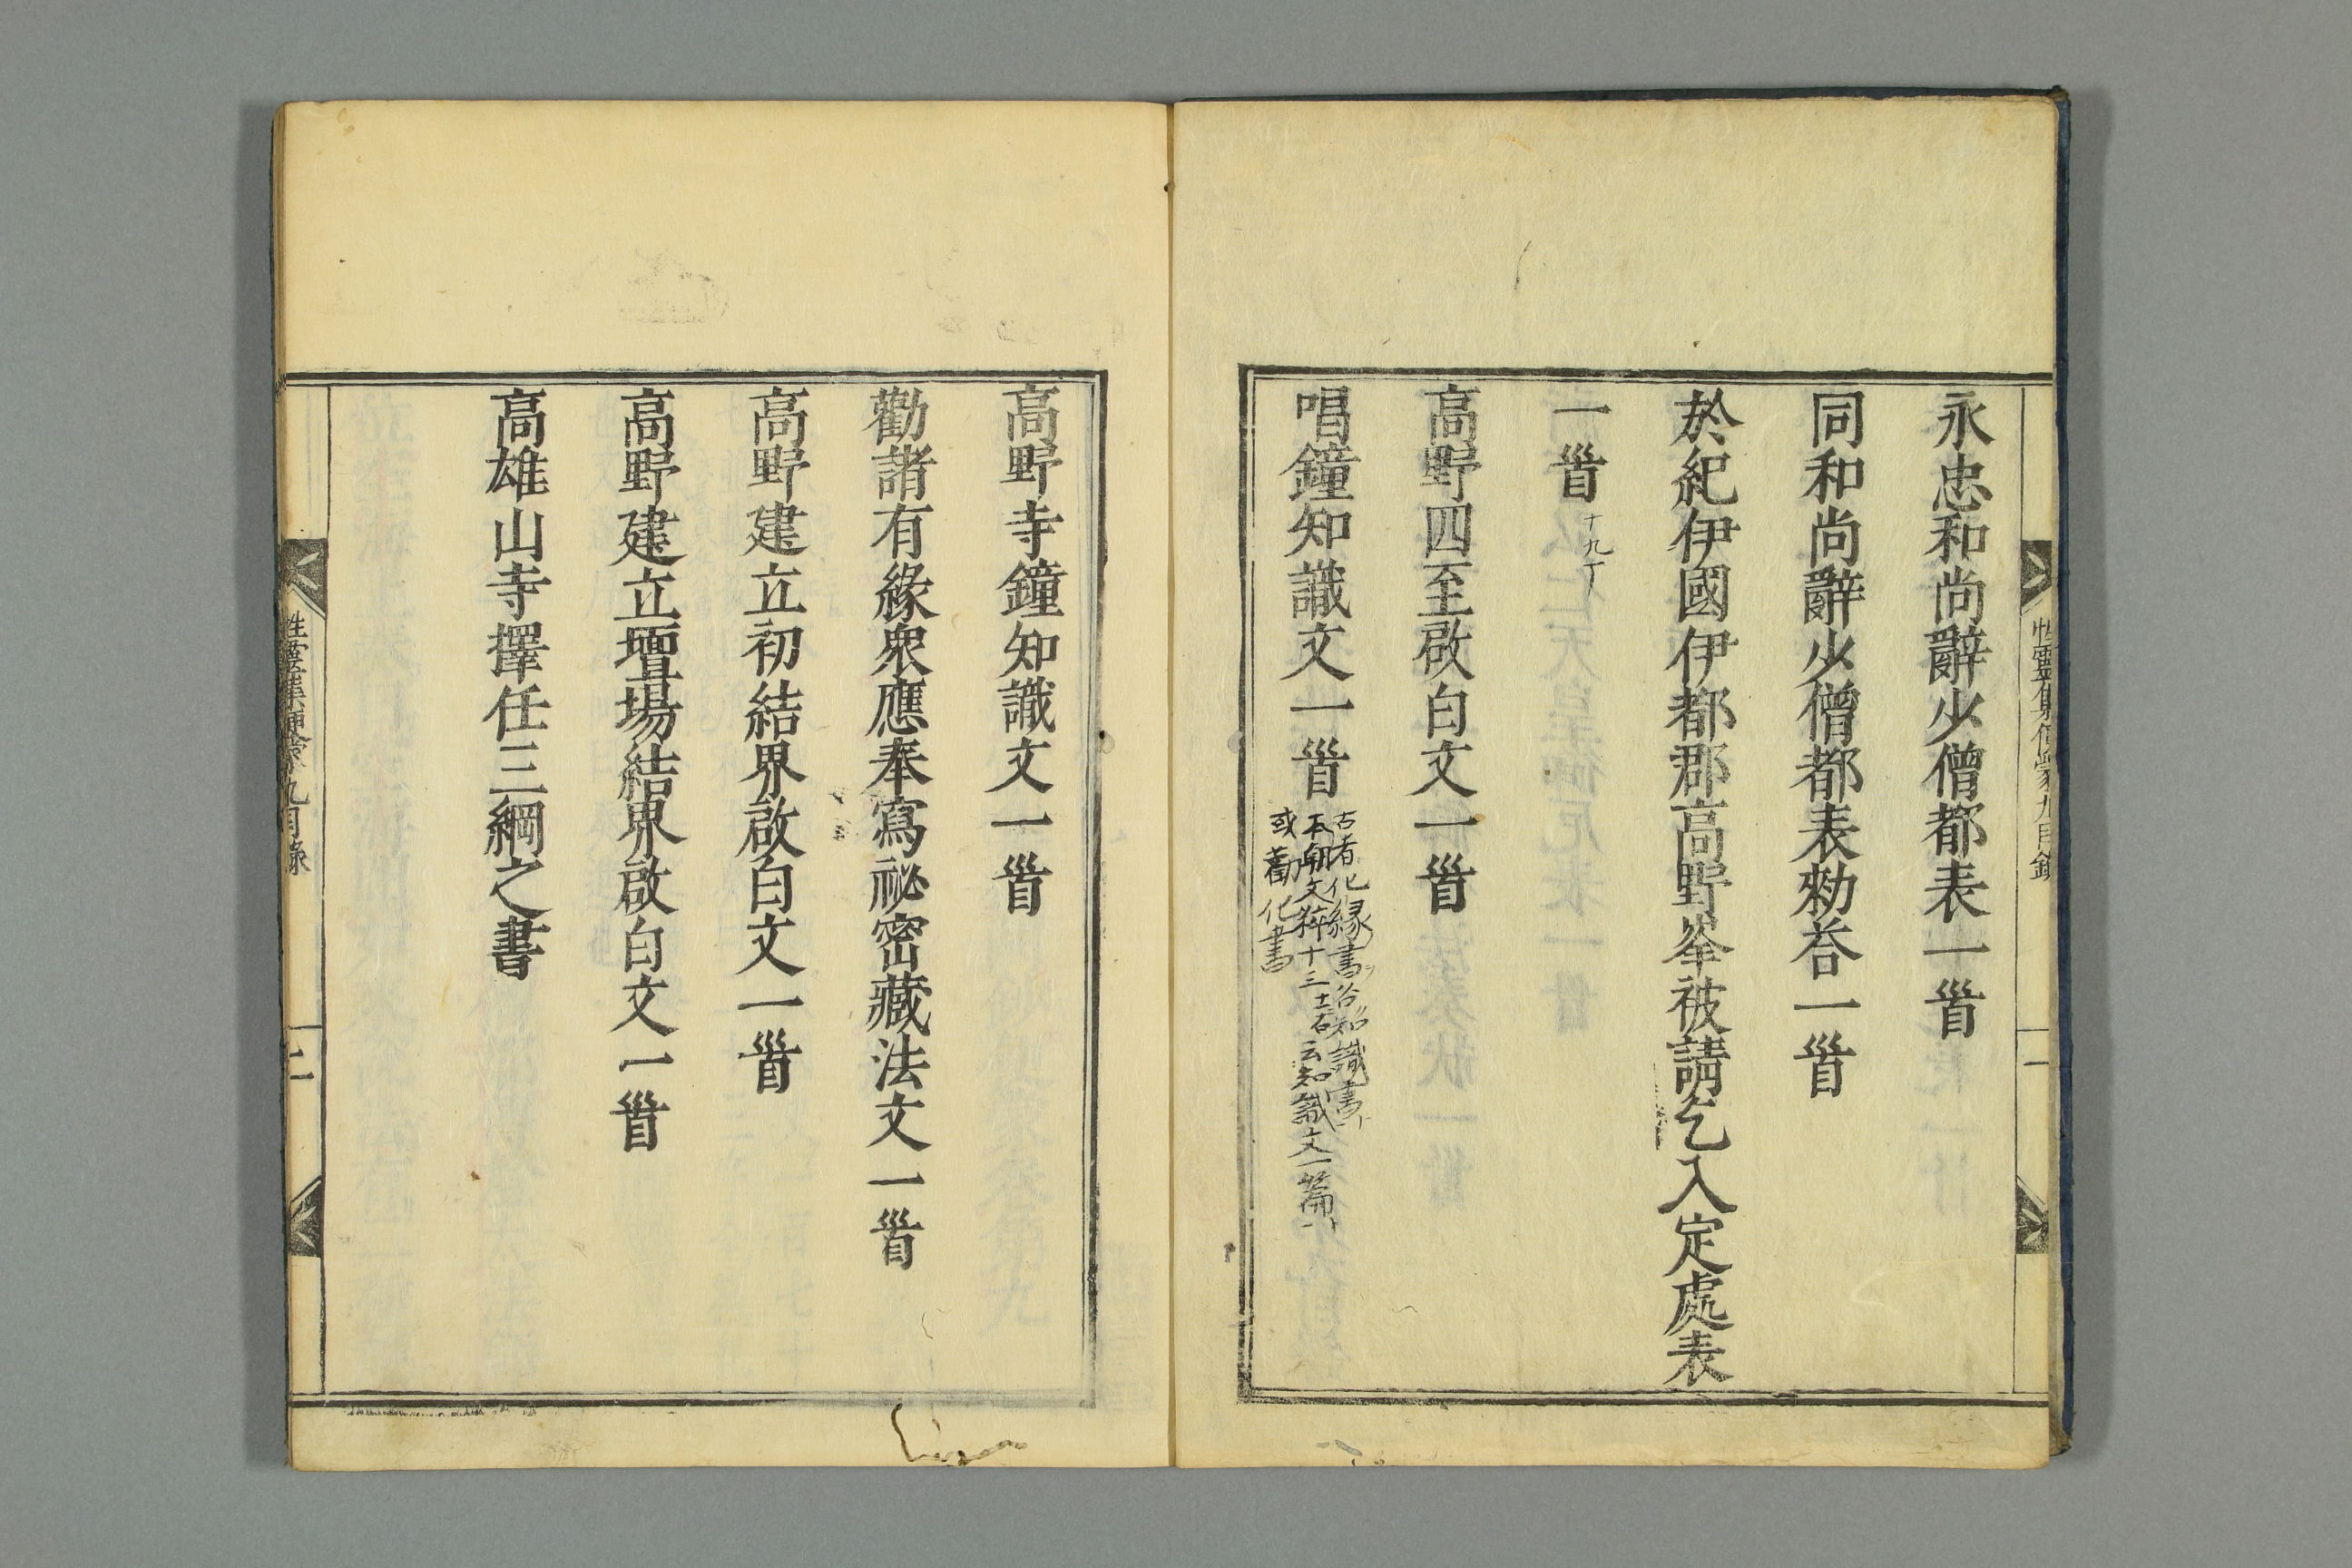 永忠和尚辭少僧都表一首
同和尚辭少僧都表勑荅一首
於紀伊國伊都郡高野峯被請乞入定處表
一首
十九丁
高野四至啟白文一首
唱鐘知識文一首
古者化縁書
本朝文粹十三
云知識文一篇
或勸化書
高野寺鐘知識文一首
勸諸有緣衆應奉寫祕密藏法文一首
高野建立初結界啟白文一首
高野建立壇場結界啟白文一首
高雄山寺擇任三綱之書
性靈集便蒙九目錄
二